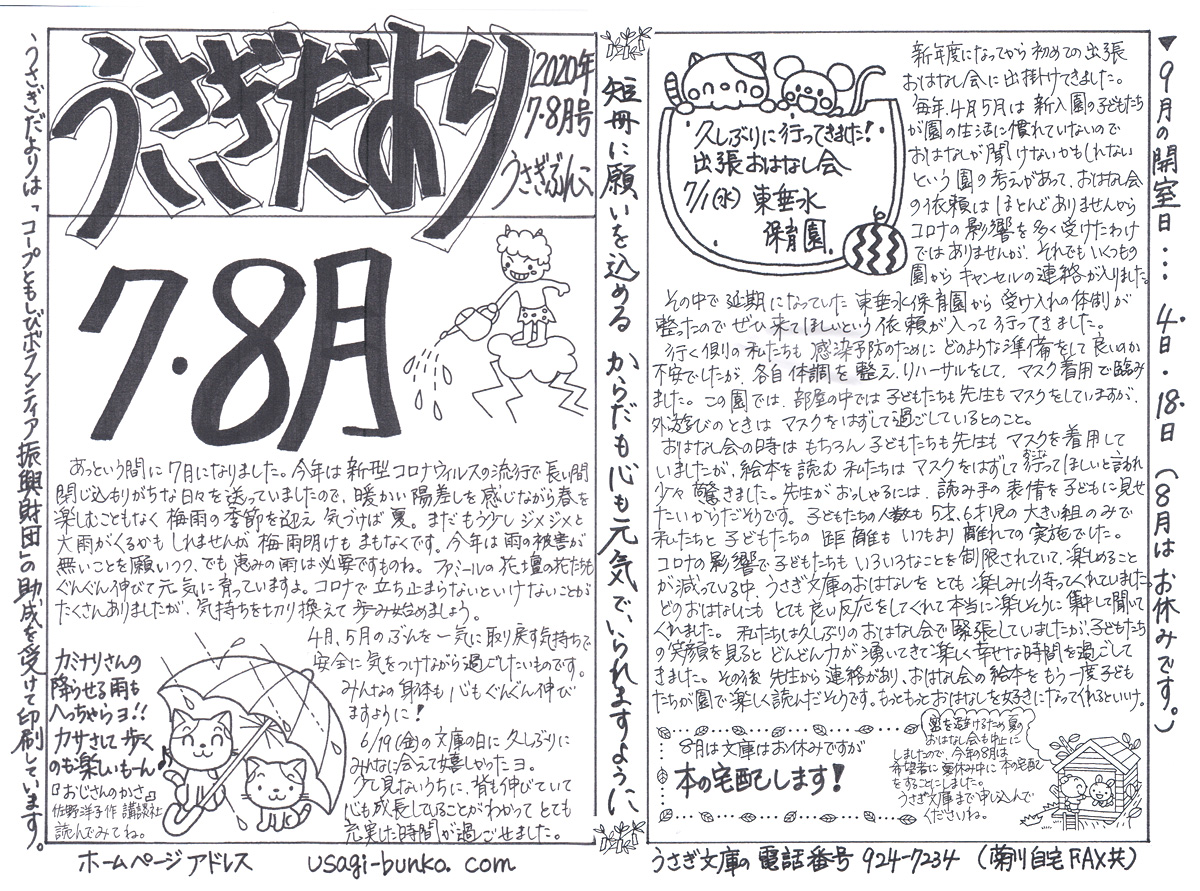 うさぎだより
2020年
7・8月号
うさぎぶんこ
うさぎだよりは「コープともしびボランティア振興財団」の助成を受けて印刷しています。
7・8月
あっという間に7月になりました。今年は新型コロナウィルスの流行で長い間
閉じ込もりがちな日々を送っていましたので、暖かい陽差しを感じながら春を
楽しむこともなく梅雨の季節を迎え 気づけば夏。まだもう少しジメジメと
大雨がくるかもしれませんが梅雨明けもまもなくです。今年は雨の被害が
無いことを願いつつ、でも恵みの雨は必要ですものね。ファミールの花壇の花たちも
ぐんぐん伸びて元気に育っていますよ。コロナで立ち止まらないといけないことが
たくさんありましたが、気持ちを切り換えて歩み始めましょう。
4月、5月のぶんを一気に取り戻す気持ちで
安全に気をつけながら過ごしたいものです。
みんなの身体も心もぐんぐん伸び
ますように!
6/19(金)の文庫の日に久しぶりに
みんなに会えて嬉しかったヨ。
少し見ないうちに、背も伸びていて
心も成長していることがわかって とても
充実した時間が過ごせました。
カミナリさんの
降らせる雨も
へっちゃらヨ!!
カサさして 歩く
のも楽しいもーん♪
『おじさんのかさ』
佐野洋子作 講談社
読んでみてね。
ホームページアドレス usagi-bunko.com
短冊に願いを込める からだも心も元気で、いられますように
久しぶりに行ってきました!
出張おはなし会
7/1(水) 東垂水
保育園
新年度になってから初めての出張
おはなし会に出掛けてきました。
毎年4月5月は新入園の子どもたち
が園の生活に慣れていないので
おはなしが聞けないかもしれない
という園の考えがあって、おはなし会
の依頼はほとんどありませんから
コロナの影響を多く受けたわけ
ではありませんが、それでもいくつもの
園からキャンセルの連絡が入りました。
その中で延期になっていた東垂水保育園から受け入れの体制が
整ったのでぜひ来てほしいという依頼が入って行ってきました。
行く側の私たちも感染予防のためにどのような準備をして良いか
不安でしたが、各自体調を整え、リハーサルをして、マスク着用で臨み
ました。この園では、部屋の中では子どもたちも先生もマスクをしていますが、
外遊びのときはマスクをはずして過ごしているとのこと。
おはなし会の時はもちろん子どもたちも先生もマスクを着用して
いましたが、絵本を読む私たちはマスクをはずして行ってほしいと言われ
少々驚きました。先生がおっしゃるには、読み手の表情を子どもに見せ
たいからだそうです。子どもたちの人数も5才、6才児の大きい組のみで
私たちと子どもたちの距離もいつもより離れての実施でした。
コロナの影響で子どもたちもいろいろなことを制限されていて、楽しめること
が減っている中、うさぎ文庫のおはなしをとても楽しみに待ってくれていました。
どのおはなしにもとても良い反応をしてくれて本当に楽しそうに集中して聞いて
くれました。私たちは久しぶりのおはなし会で緊張していましたが、子どもたち
の笑顔を見るとどんどん力が湧いてきて楽しく幸せな時間を過ごして
きました。その後 先生から連絡があり、おはなし会の絵本をもう一度子ども
たちが園で楽しく読んだそうです。もっともっとおはなしを好きになってくれるといいナ。
8月は文庫はお休みですが
本の宅配します!
密を避けるため夏の
おはなし会も中止に
しましたので、今年の8月は
希望者に夏休み中に本の宅配
をすることにしました。
うさぎ文庫まで申し込んで
くださいね。
▼9月の開室日…4日・18日(8月はお休みです。)
うさぎ文庫の電話番号 924-7234 (菊川自宅FAX共)